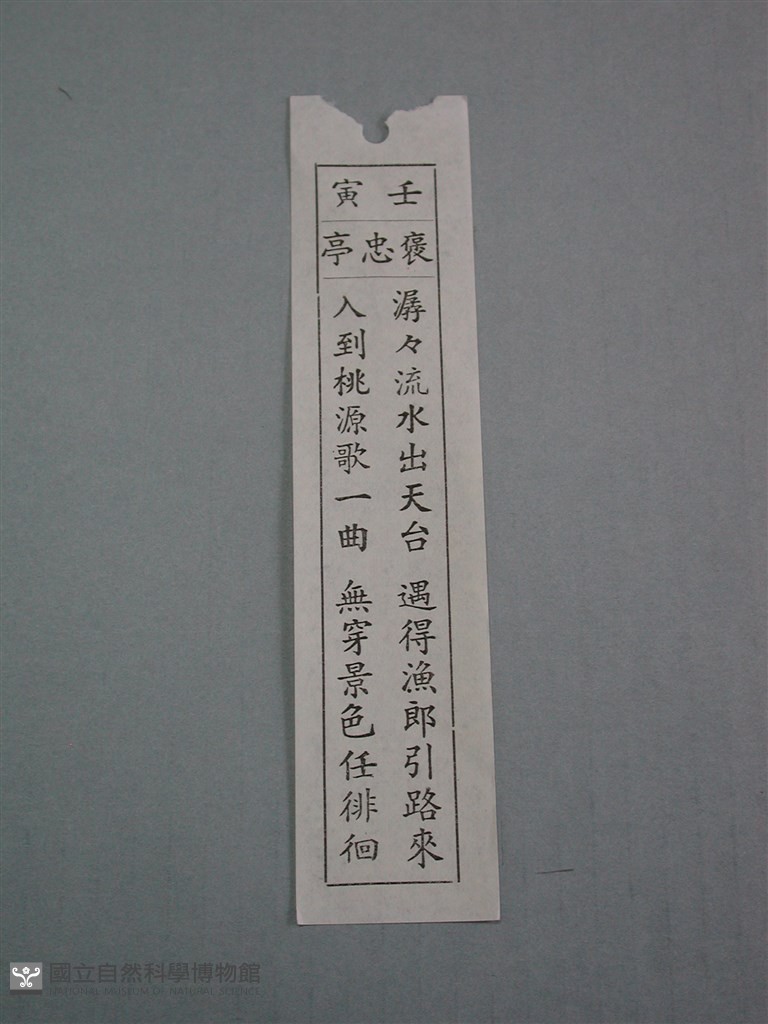 壬寅
褒忠亭
潺々流水出天台 遇得漁郎引路來
入到桃源歌一曲 無穿景色任徘徊
國立自然科學博物館
NATIONAL MUSEUM OF NATURAL SCIENCE